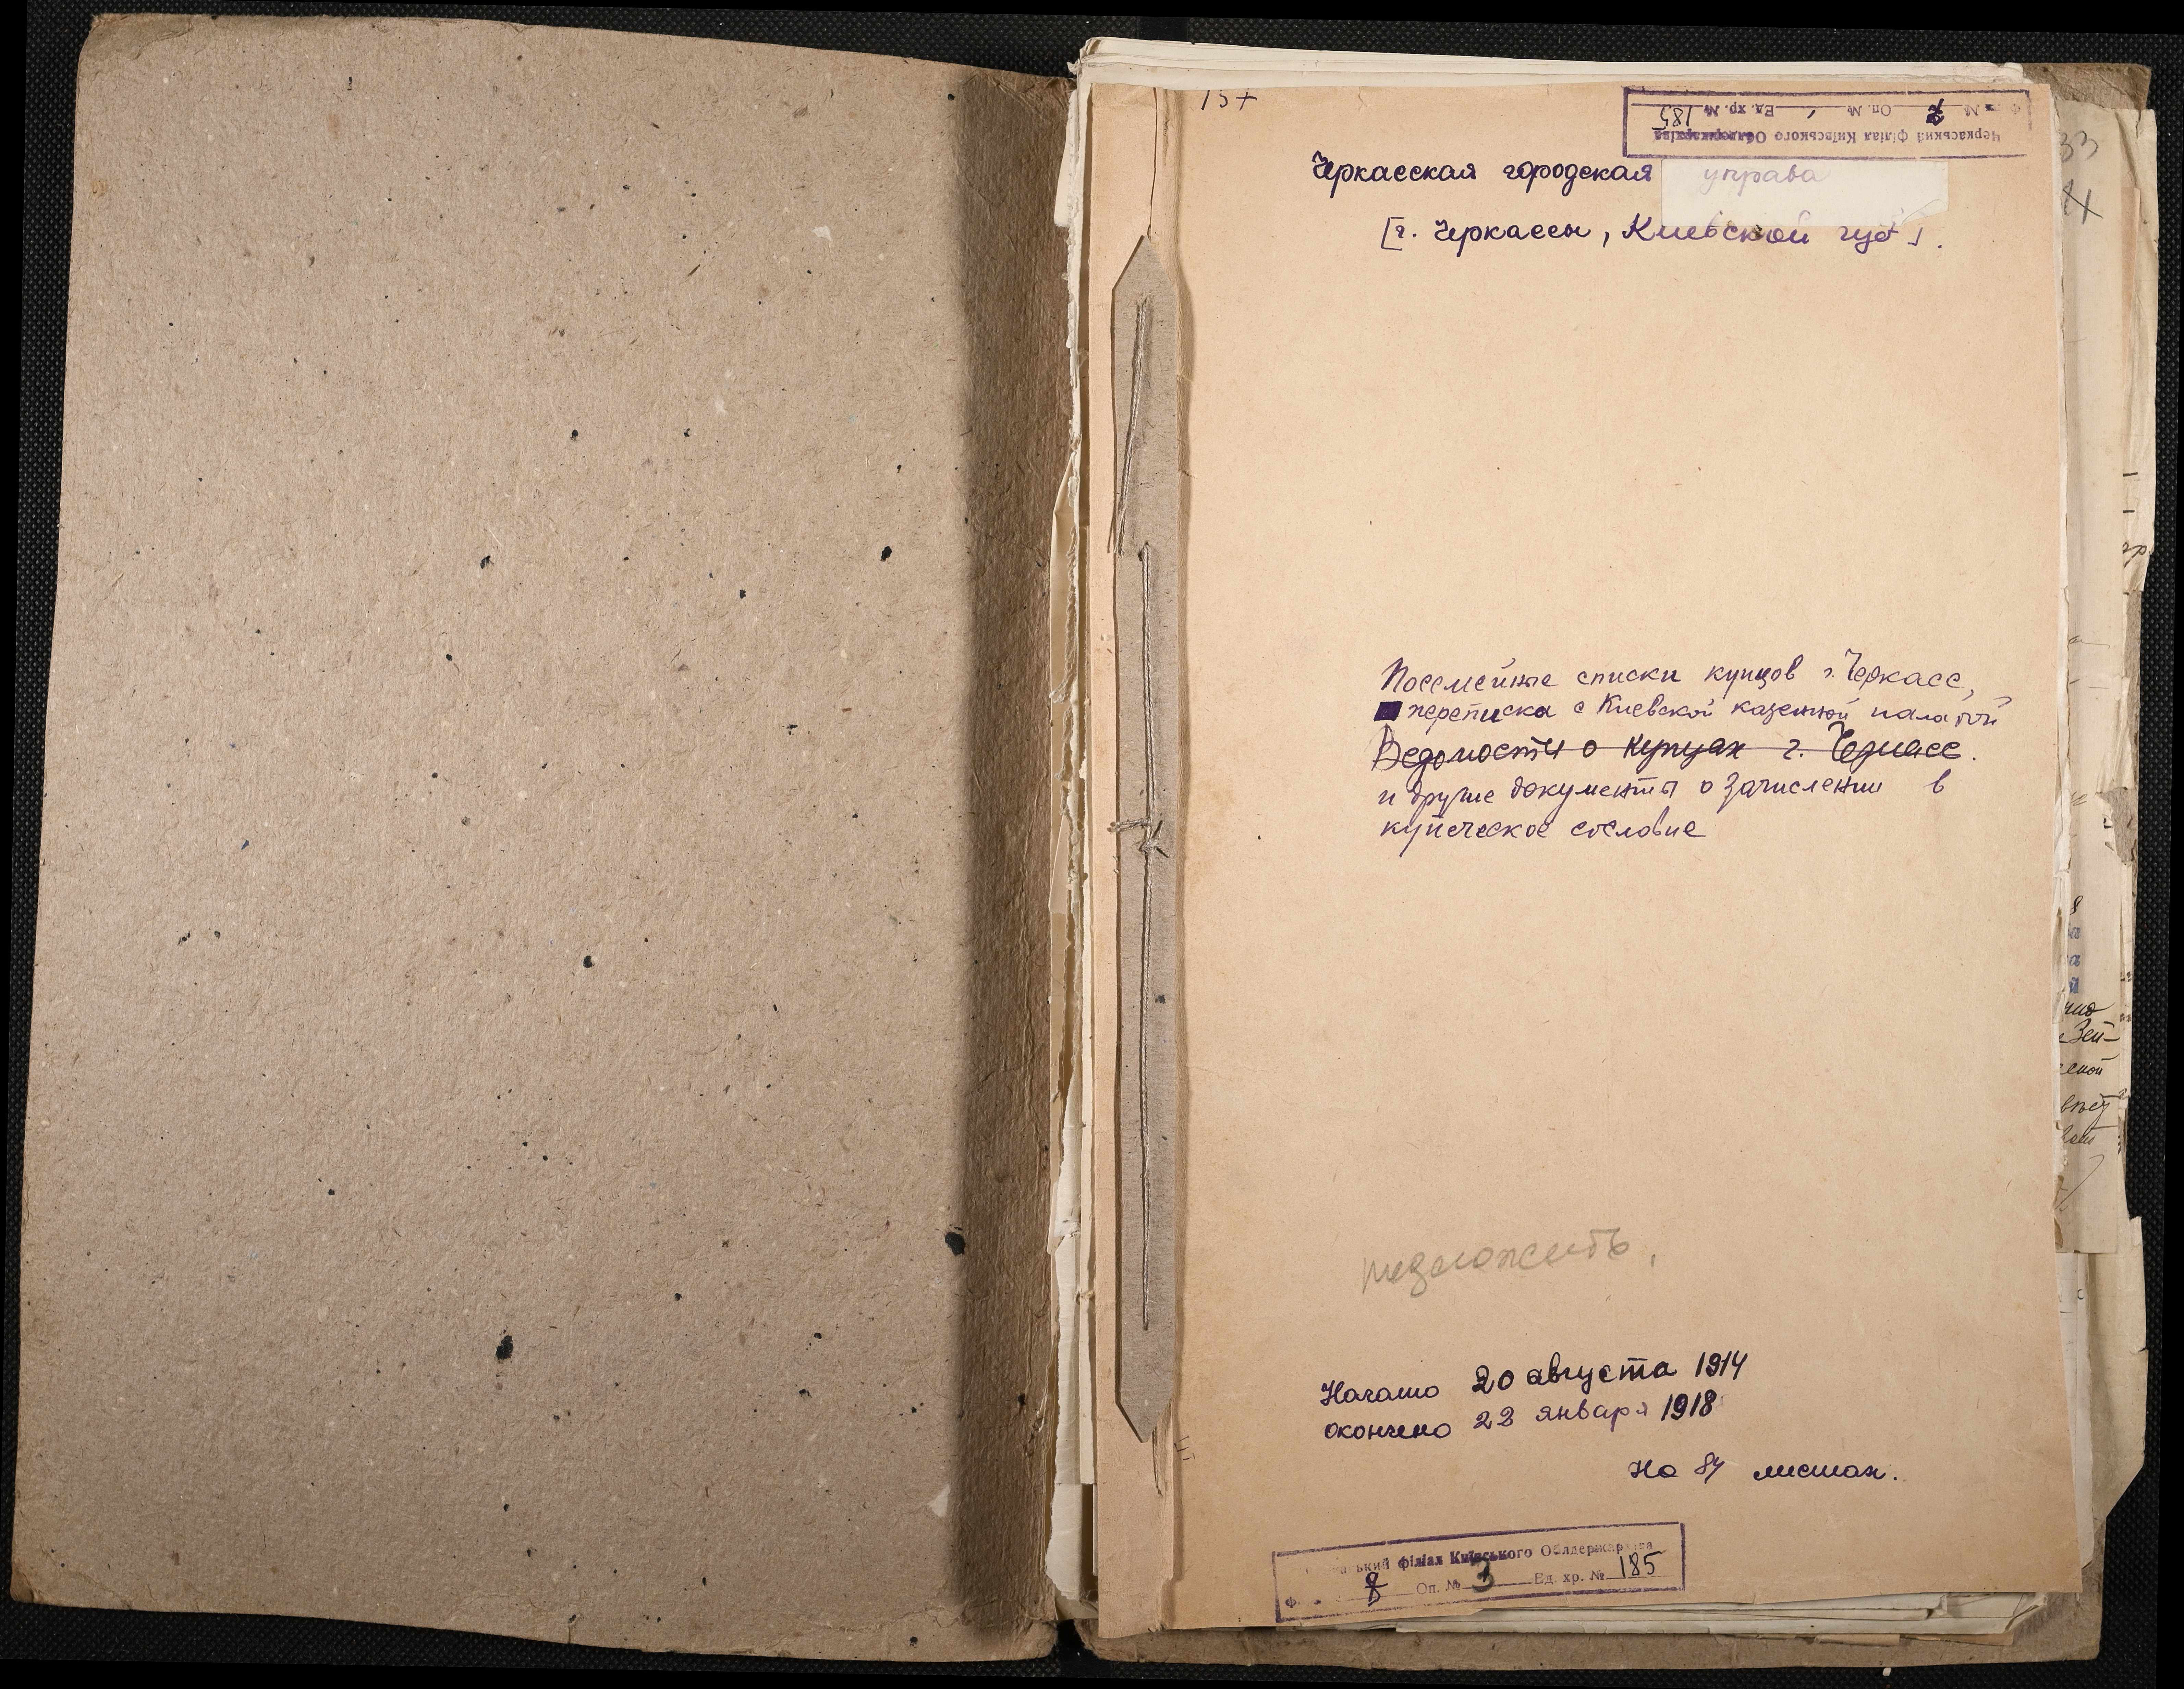 157
Черкаський філіал Київського Облдержархіва
Ф. № Оп. № Ед. хр. № 185
Черкасская городская управа
[г. Черкассы, Киевской губ].
Посемейные списки купцов г. Черкасс,
переписка с Киевской казенной палатой
Ведомости о купцах г. Черкасс.
и другие документы о зачислении в
купеческое сословие
Начато 20 августа 1914
окончено 22 января 1918
На 84 листах.
філіал Київського Облдержархіва
Оп. № 3 Ед. хр. № 185